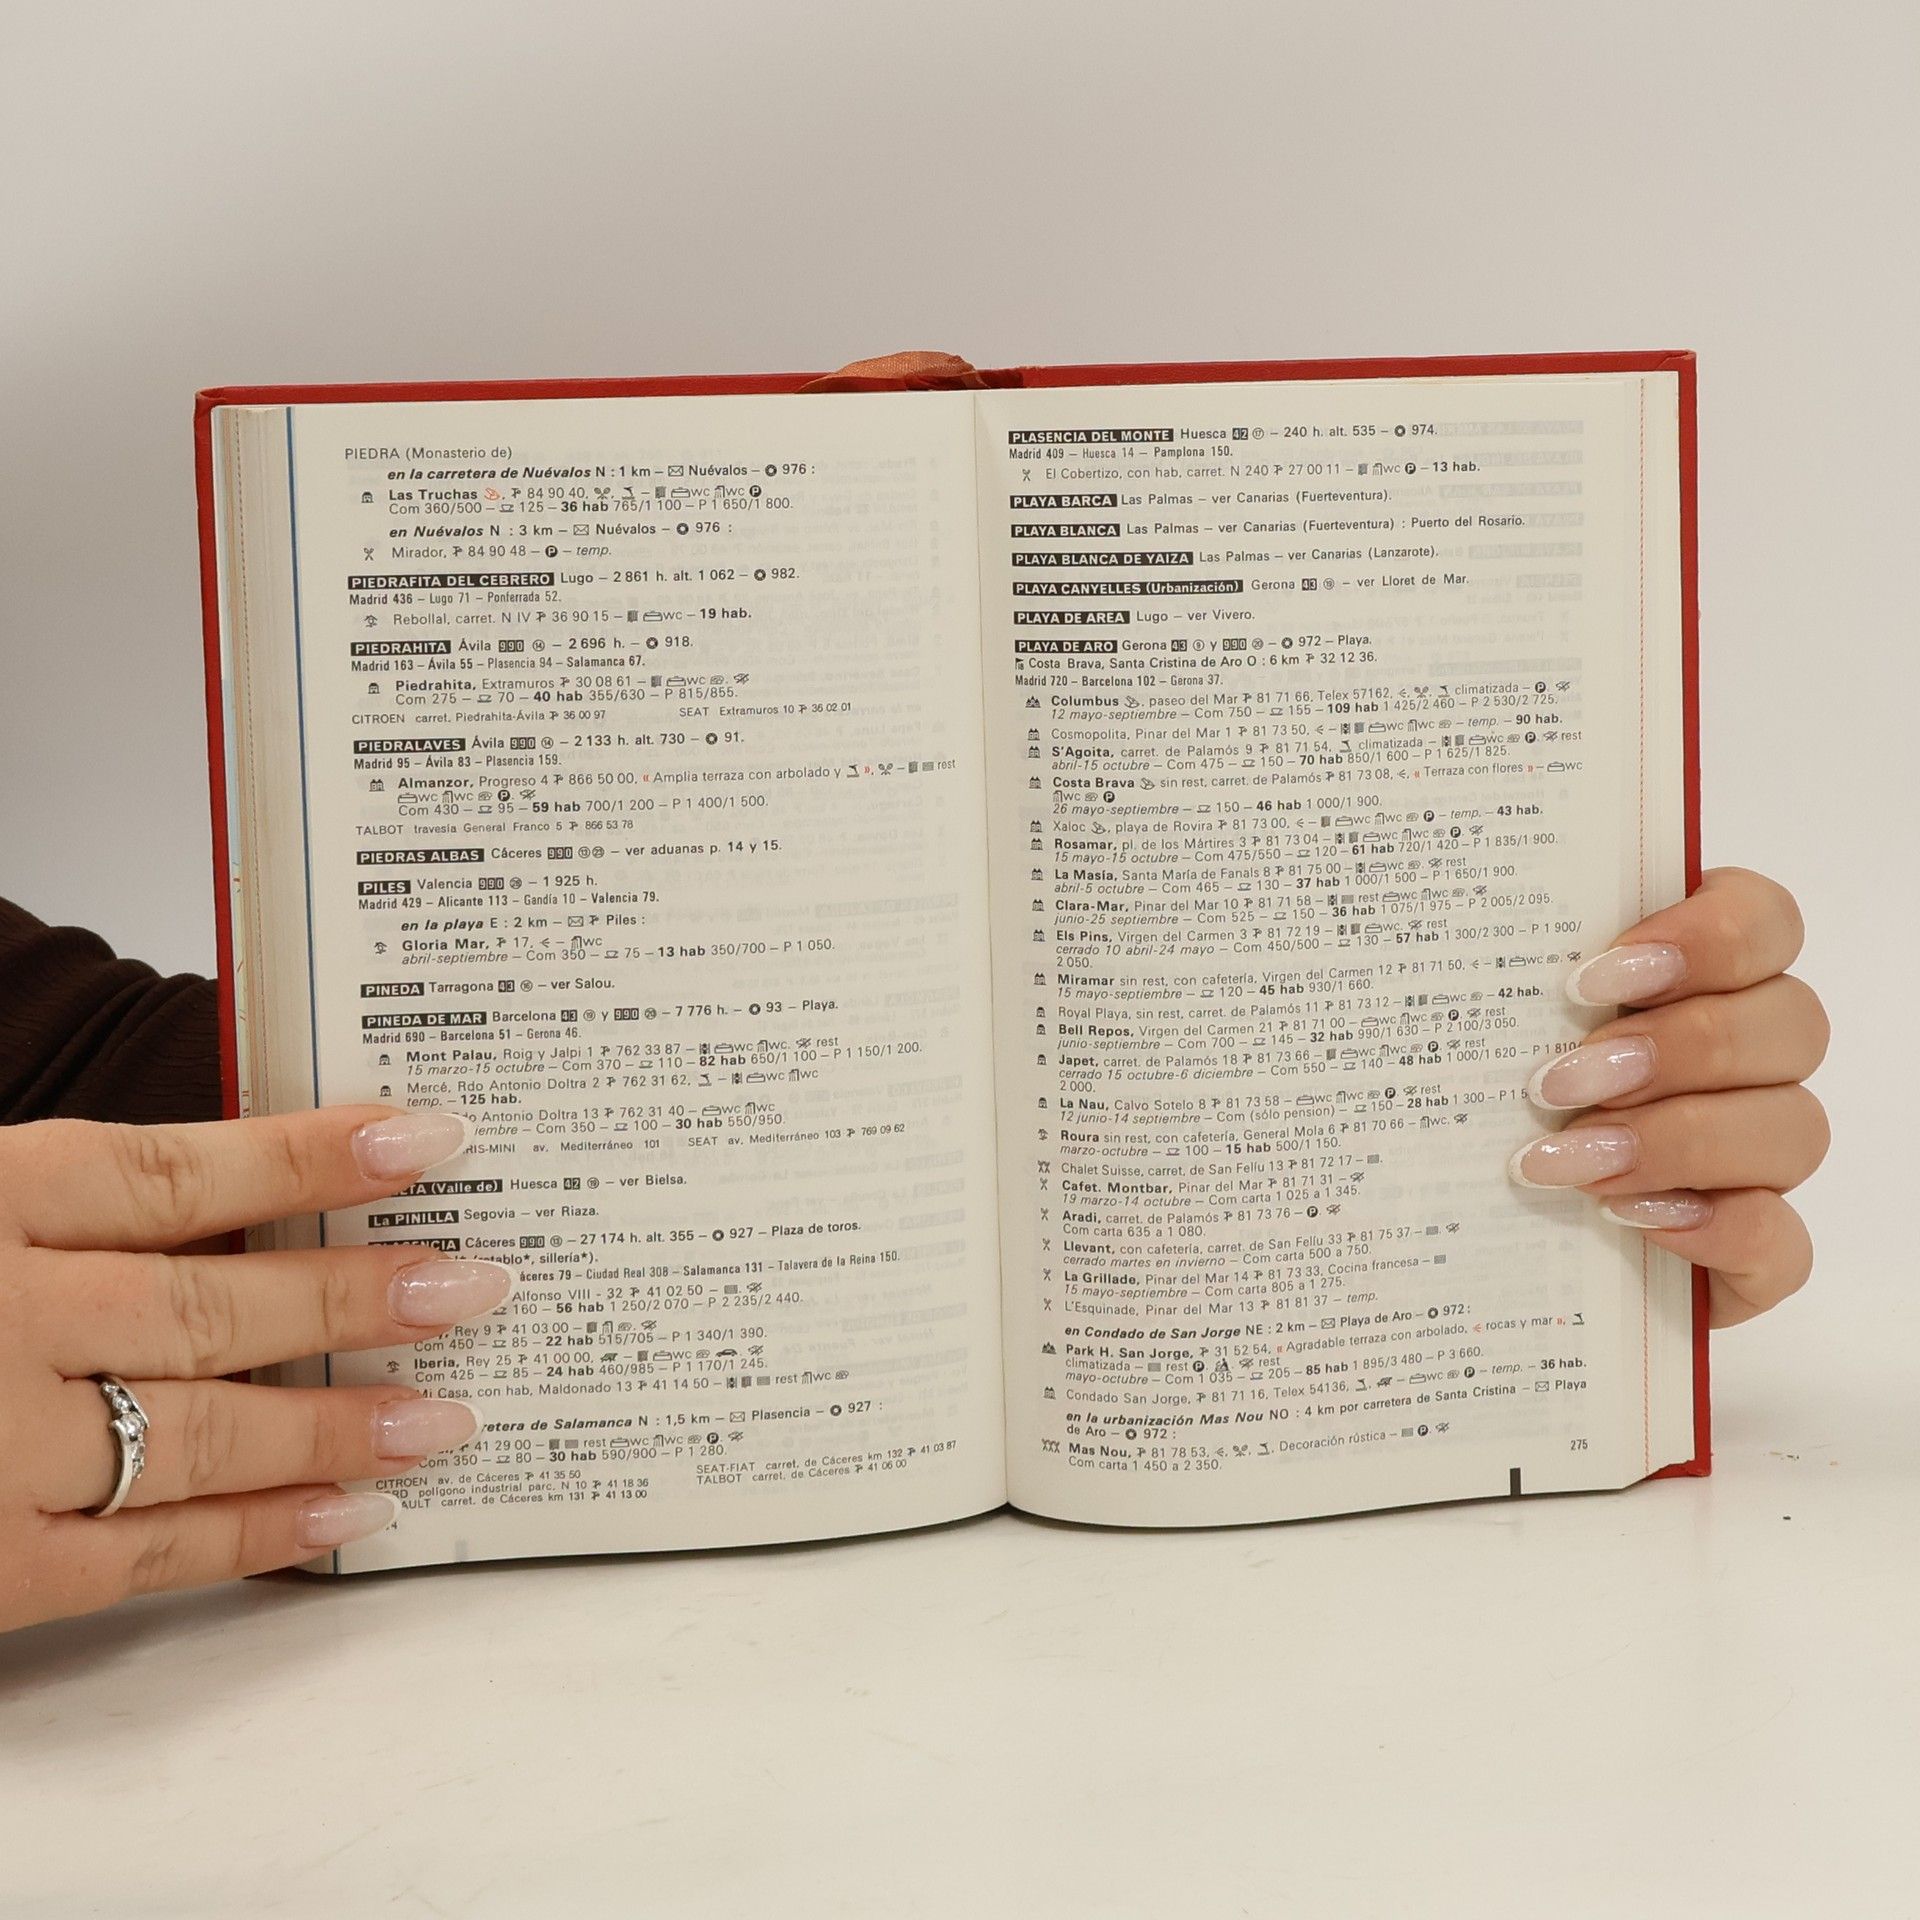 PIEDRA (Monasterio de)
en la carretera de Nuévalos N : 1 km – Nuévalos – 976 :
Las Truchas, 84 90 40, – wc wc
Com 360/500 – 125 – 36 hab 765/1 100 – P 1 650/1 800.
en Nuévalos N : 3 km – Nuévalos – 976 :
Mirador, 84 90 48 – P – temp.
PIEDRAFITA DEL CEBRERO Lugo – 2 861 h. alt. 1 062 – 982.
Madrid 436 – Lugo 71 – Ponferrada 52.
Rebollal, carret. N IV 36 90 15 – wc – 19 hab.
PIEDRAHITA Ávila 990 ⑭ – 2 696 h. – 918.
Madrid 163 – Ávila 55 – Plasencia 94 – Salamanca 67.
Piedrahita, Extramuros 30 08 61 – wc
Com 275 – 70 – 40 hab 355/630 – P 815/855.
CITROEN carret. Piedrahita-Ávila 36 00 97 SEAT Extramuros 10 36 02 01
PIEDRALAVES Ávila 990 ⑭ – 2 133 h. alt. 730 – 91.
Madrid 95 – Ávila 83 – Plasencia 159.
Almanzor, Progreso 4 866 50 00, « Amplia terraza con arbolado y », – rest
wc wc P.
Com 430 – 95 – 59 hab 700/1 200 – P 1 400/1 500.
TALBOT travesía General Franco 5 866 53 78
PIEDRAS ALBAS Cáceres 990 ⑬ ㉓ – ver aduanas p. 14 y 15.
PILES Valencia 990 – 1 925 h.
Madrid 429 – Alicante 113 – Gandía 10 – Valencia 79.
en la playa E : 2 km – Piles :
Gloria Mar, 17, – wc
abril-septiembre – Com 350 – 75 – 13 hab 350/700 – P 1 050.
PINEDA Tarragona 43 ⑯ – ver Salou.
PINEDA DE MAR Barcelona 43 y 990 – 7 776 h. – 93 – Playa.
Madrid 690 – Barcelona 51 – Gerona 46.
Mont Palau, Roig y Jalpi 1 762 33 87 – wc wc. rest
15 marzo-15 octubre – Com 370 – 110 – 82 hab 650/1 100 – P 1 150/1 200.
Mercé, Rdo Antonio Doltra 2 762 31 62, – wc wc
temp. – 125 hab.
do Antonio Doltra 13 762 31 40 – wc wc
iembre – Com 350 – 100 – 30 hab 550/950.
RIS-MINI av. Mediterráneo 101 SEAT av. Mediterráneo 103 769 09 62
TA (Valle de) Huesca 42 – ver Bielsa.
La PINILLA Segovia – ver Riaza.
Cáceres 990 ⑬ – 27 174 h. alt. 355 – 927 – Plaza de toros.
sillería*).
áceres 79 – Ciudad Real 308 – Salamanca 131 – Talavera de la Reina 150.
Alfonso VIII - 32 41 02 50 –
160 – 56 hab 1 250/2 070 – P 2 235/2 440.
Rey 9 41 03 00 –
Com 450 – 85 – 22 hab 515/705 – P 1 340/1 390.
Iberia, Rey 25 41 00 00, – wc
Com 425 – 85 – 24 hab 460/985 – P 1 170/1 245.
Mi Casa, con hab, Maldonado 13 41 14 50 – rest wc
retera de Salamanca N : 1,5 km – Plasencia – 927 :
41 29 00 – rest wc wc P.
Com 350 – 80 – 30 hab 590/900 – P 1 280.
CITROEN av. de Cáceres 41 35 50 SEAT-FIAT carret. de Cáceres km 132 41 03 87
RD polígono industrial parc. N 10 41 18 36 TALBOT carret. de Cáceres 41 06 00
AULT carret. de Cáceres km 131 41 13 00
4
PLASENCIA DEL MONTE Huesca 42 ⑰ – 240 h. alt. 535 – 974.
Madrid 409 – Huesca 14 – Pamplona 150.
El Cobertizo, con hab, carret. N 240 27 00 11 – wc P – 13 hab.
PLAYA BARCA Las Palmas – ver Canarias (Fuerteventura).
PLAYA BLANCA Las Palmas – ver Canarias (Fuerteventura) : Puerto del Rosario.
PLAYA BLANCA DE YAIZA Las Palmas – ver Canarias (Lanzarote).
PLAYA CANYELLES (Urbanización) Gerona 43 – ver Lloret de Mar.
PLAYA DE AREA Lugo – ver Vivero.
PLAYA DE ARO Gerona 43 ⑨ y 990 – 972 – Playa.
Costa Brava, Santa Cristina de Aro O : 6 km 32 12 36.
Madrid 720 – Barcelona 102 – Gerona 37.
Columbus, paseo del Mar 81 71 66, Telex 57162, climatizada – P.
12 mayo-septiembre – Com 750 – 155 – 109 hab 1 425/2 460 – P 2 530/2 725.
Cosmopolita, Pinar del Mar 1 81 73 50, – wc wc – temp. – 90 hab.
S'Agoita, carret. de Palamós 9 81 71 54, climatizada – wc P. rest
abril-15 octubre – Com 475 – 150 – 70 hab 850/1 600 – P 1 625/1 825.
Costa Brava sin rest, carret. de Palamós 81 73 08, « Terraza con flores » – wc
wc P
26 mayo-septiembre – 150 – 46 hab 1 000/1 900.
Xaloc, playa de Rovira 81 73 00, – wc wc P – temp. – 43 hab.
Rosamar, pl. de los Mártires 3 81 73 04 – wc wc P.
15 mayo-15 octubre – Com 475/550 – 120 – 61 hab 720/1 420 – P 1 835/1 900.
La Masía, Santa María de Fanals 8 81 75 00 – wc rest
abril-5 octubre – Com 465 – 130 – 37 hab 1 000/1 500 – P 1 650/1 900.
Clara-Mar, Pinar del Mar 10 81 71 58 – rest wc wc
junio-25 septiembre – Com 525 – 150 – 36 hab 1 075/1 975 – P 2 005/2 095.
Els Pins, Virgen del Carmen 3 81 72 19 – wc rest
cerrado 10 abril-24 mayo – Com 450/500 – 130 – 57 hab 1 300/2 300 – P 1 900/
2 050.
Miramar sin rest, con cafetería, Virgen del Carmen 12 81 71 50, – wc
15 mayo-septiembre – 120 – 45 hab 930/1 660.
Royal Playa, sin rest, carret. de Palamós 11 81 73 12 – wc – 42 hab.
Bell Repos, Virgen del Carmen 21 81 71 00 – wc wc P. rest
junio-septiembre – Com 700 – 145 – 32 hab 990/1 630 – P 2 100/3 050.
Japet, carret. de Palamós 18 81 73 66 – wc wc P. rest
cerrado 15 octubre-6 diciembre – Com 550 – 140 – 48 hab 1 000/1 620 – P 1 810/
2 000.
La Nau, Calvo Sotelo 8 81 73 58 – wc wc P. rest
12 junio-14 septiembre – Com (sólo pension) – 150 – 28 hab 1 300 – P 1 5
Roura sin rest, con cafetería, General Mola 6 81 70 66 – wc.
marzo-octubre – 100 – 15 hab 500/1 150.
Chalet Suisse, carret. de San Felíu 13 81 72 17 –
Cafet. Montbar, Pinar del Mar 81 71 31 –
19 marzo-14 octubre – Com carta 1 025 a 1 345.
Aradi, carret. de Palamós 81 73 76 – P.
Com carta 635 a 1 080.
Llevant, con cafetería, carret. de San Felíu 33 81 75 37 –
cerrado martes en invierno – Com carta 500 a 750.
La Grillade, Pinar del Mar 14 81 73 33, Cocina francesa –
15 mayo-septiembre – Com carta 805 a 1 275.
L'Esquinade, Pinar del Mar 13 81 81 37 – temp.
en Condado de San Jorge NE : 2 km – Playa de Aro – 972 :
Park H. San Jorge, 31 52 54, « Agradable terraza con arbolado, rocas y mar »,
climatizada – rest P. rest
mayo-octubre – Com 1 035 – 205 – 85 hab 1 895/3 480 – P 3 660.
Condado San Jorge, 81 71 16, Telex 54136, – wc P – temp. – 36 hab.
en la urbanización Mas Nou NO : 4 km por carretera de Santa Cristina – Playa
de Aro – 972 :
Mas Nou, 81 78 53, Decoración rústica – P.
Com carta 1 450 a 2 350.
275